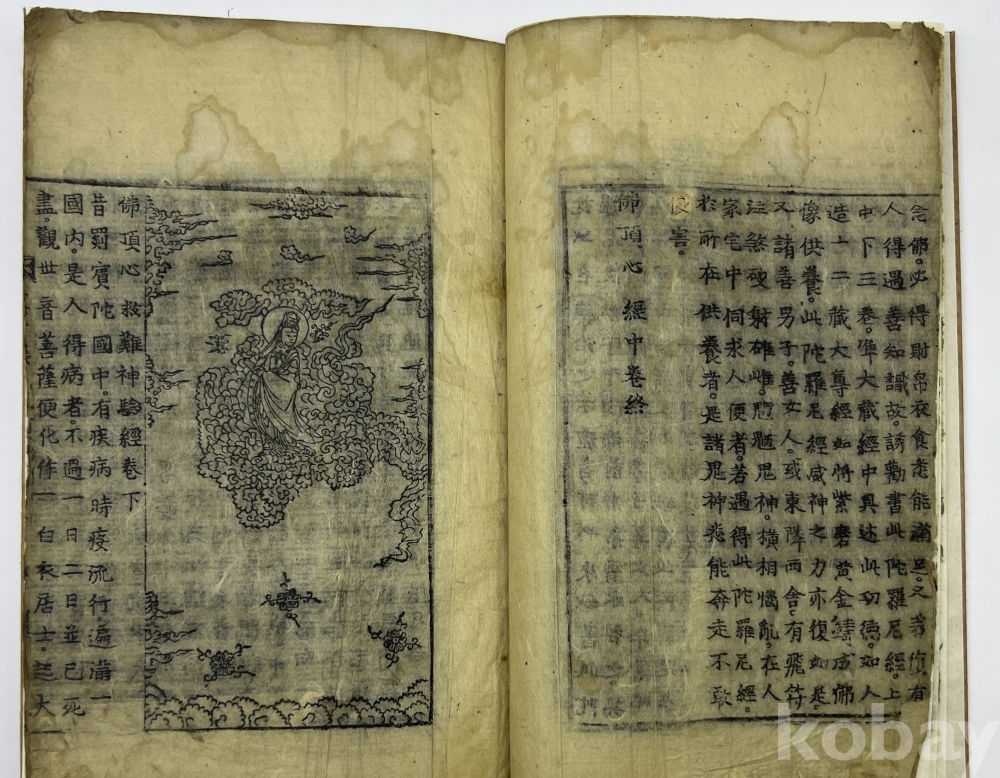 念佛必得財帛衣食悉能滿足又若復有
人得遇善知識故誘勸書此陁羅尼經上
中下三卷準大藏經中具述此功德如人
造十二藏大尊經如將紫磨黃金鑄成佛
像供養此陁羅尼經威神之力亦復如是
又諸善男子善女人或東隣西舍有飛符
注煞破射雄雌魍魎鬼神橫相惱亂在人
家宅中伺求人便者若遇得此陁羅尼經
於所在供養者是諸鬼神悉能奔走不敢
侵害
佛頂心經中卷終
佛頂心救難神驗經卷下
昔罽賓陁國中有疾病時疫流行遍滿一
國內是人得病者不過一日二日並已死
盡觀世音菩薩便化作一白衣居士起大
kobay